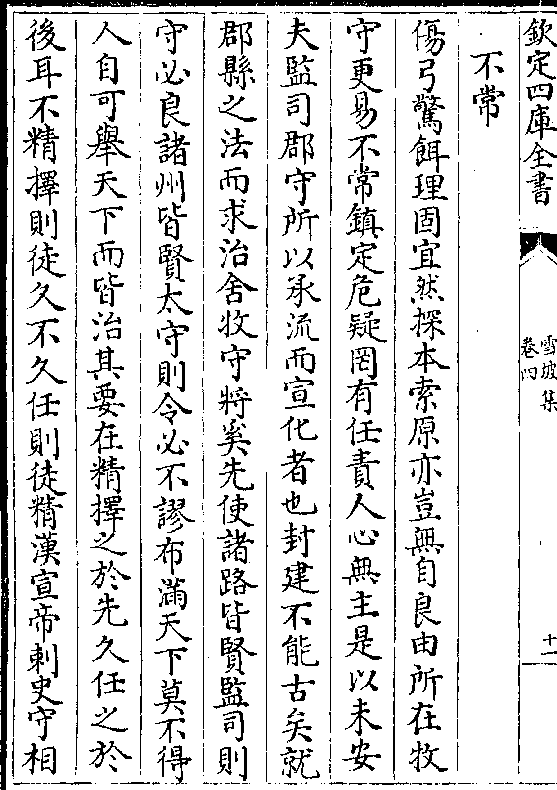 欽定四庫全書
雪坡集
卷四
十一
不常
傷弓驚餌理固宜然探本索原亦豈無自良由所在牧
守更易不常鎮定危疑罔有任責人心無主是以未安
夫監司郡守所以承流而宣化者也封建不能古矣就
郡縣之法而求治舍牧守將奚先使諸路皆賢監司則
守必良諸州皆賢太守則令必不謬布滿天下莫不得
人自可舉天下而皆治其要在精擇之於先久任之於
後耳不精擇則徒久不久任則徒精漢宣帝刺史守相